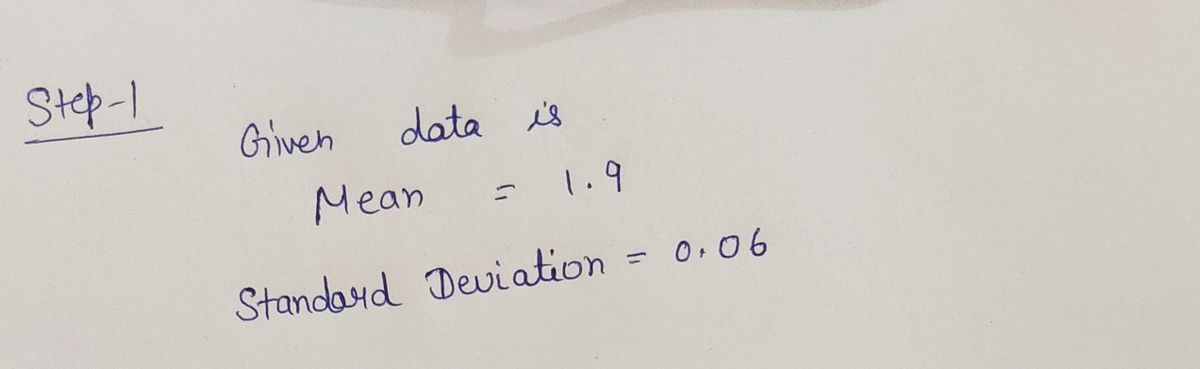 Step-1
Given data is
Mean = 1.9
Standard Deviation = 0.06